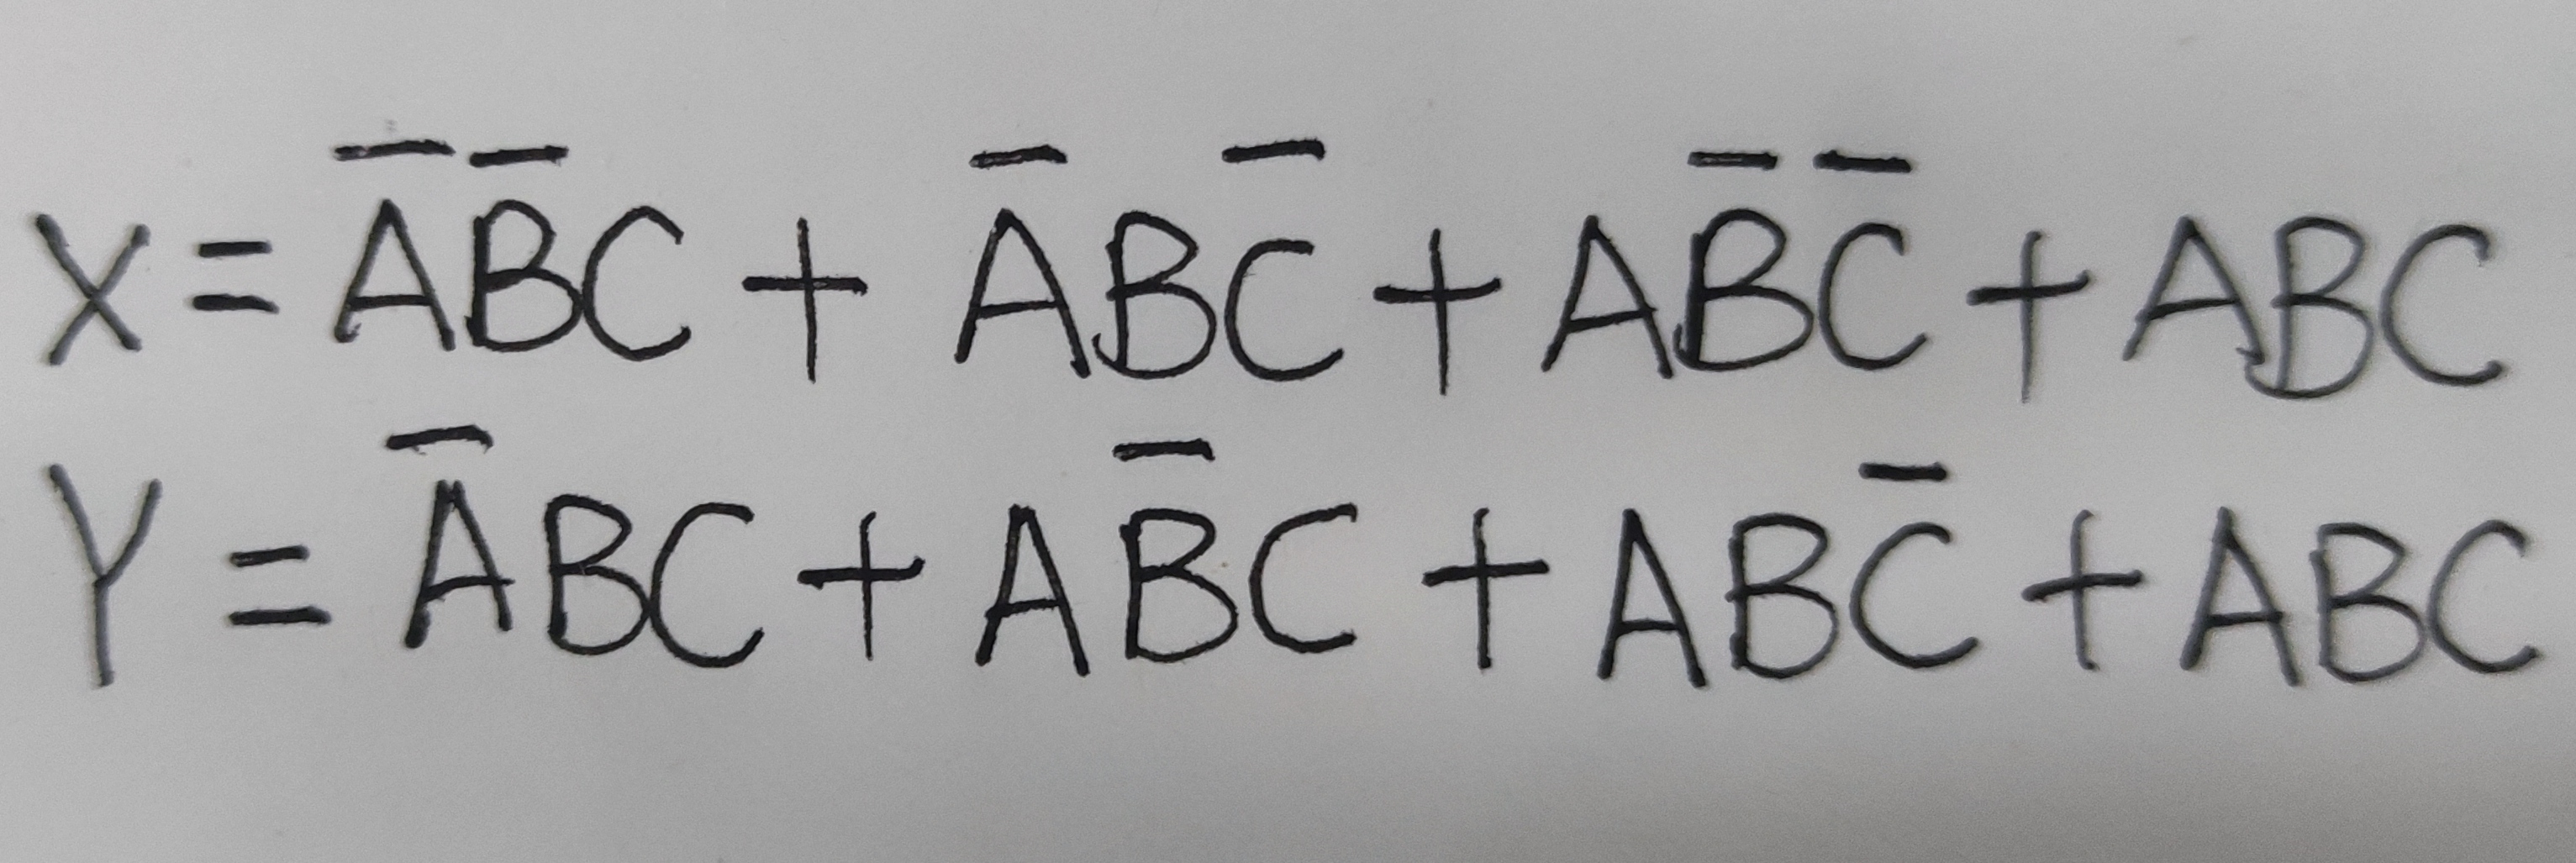 X = A̅B̅C + A̅BC̅ + AB̅C̅ + ABC
Y = A̅BC + AB̅C + ABC̅ + ABC